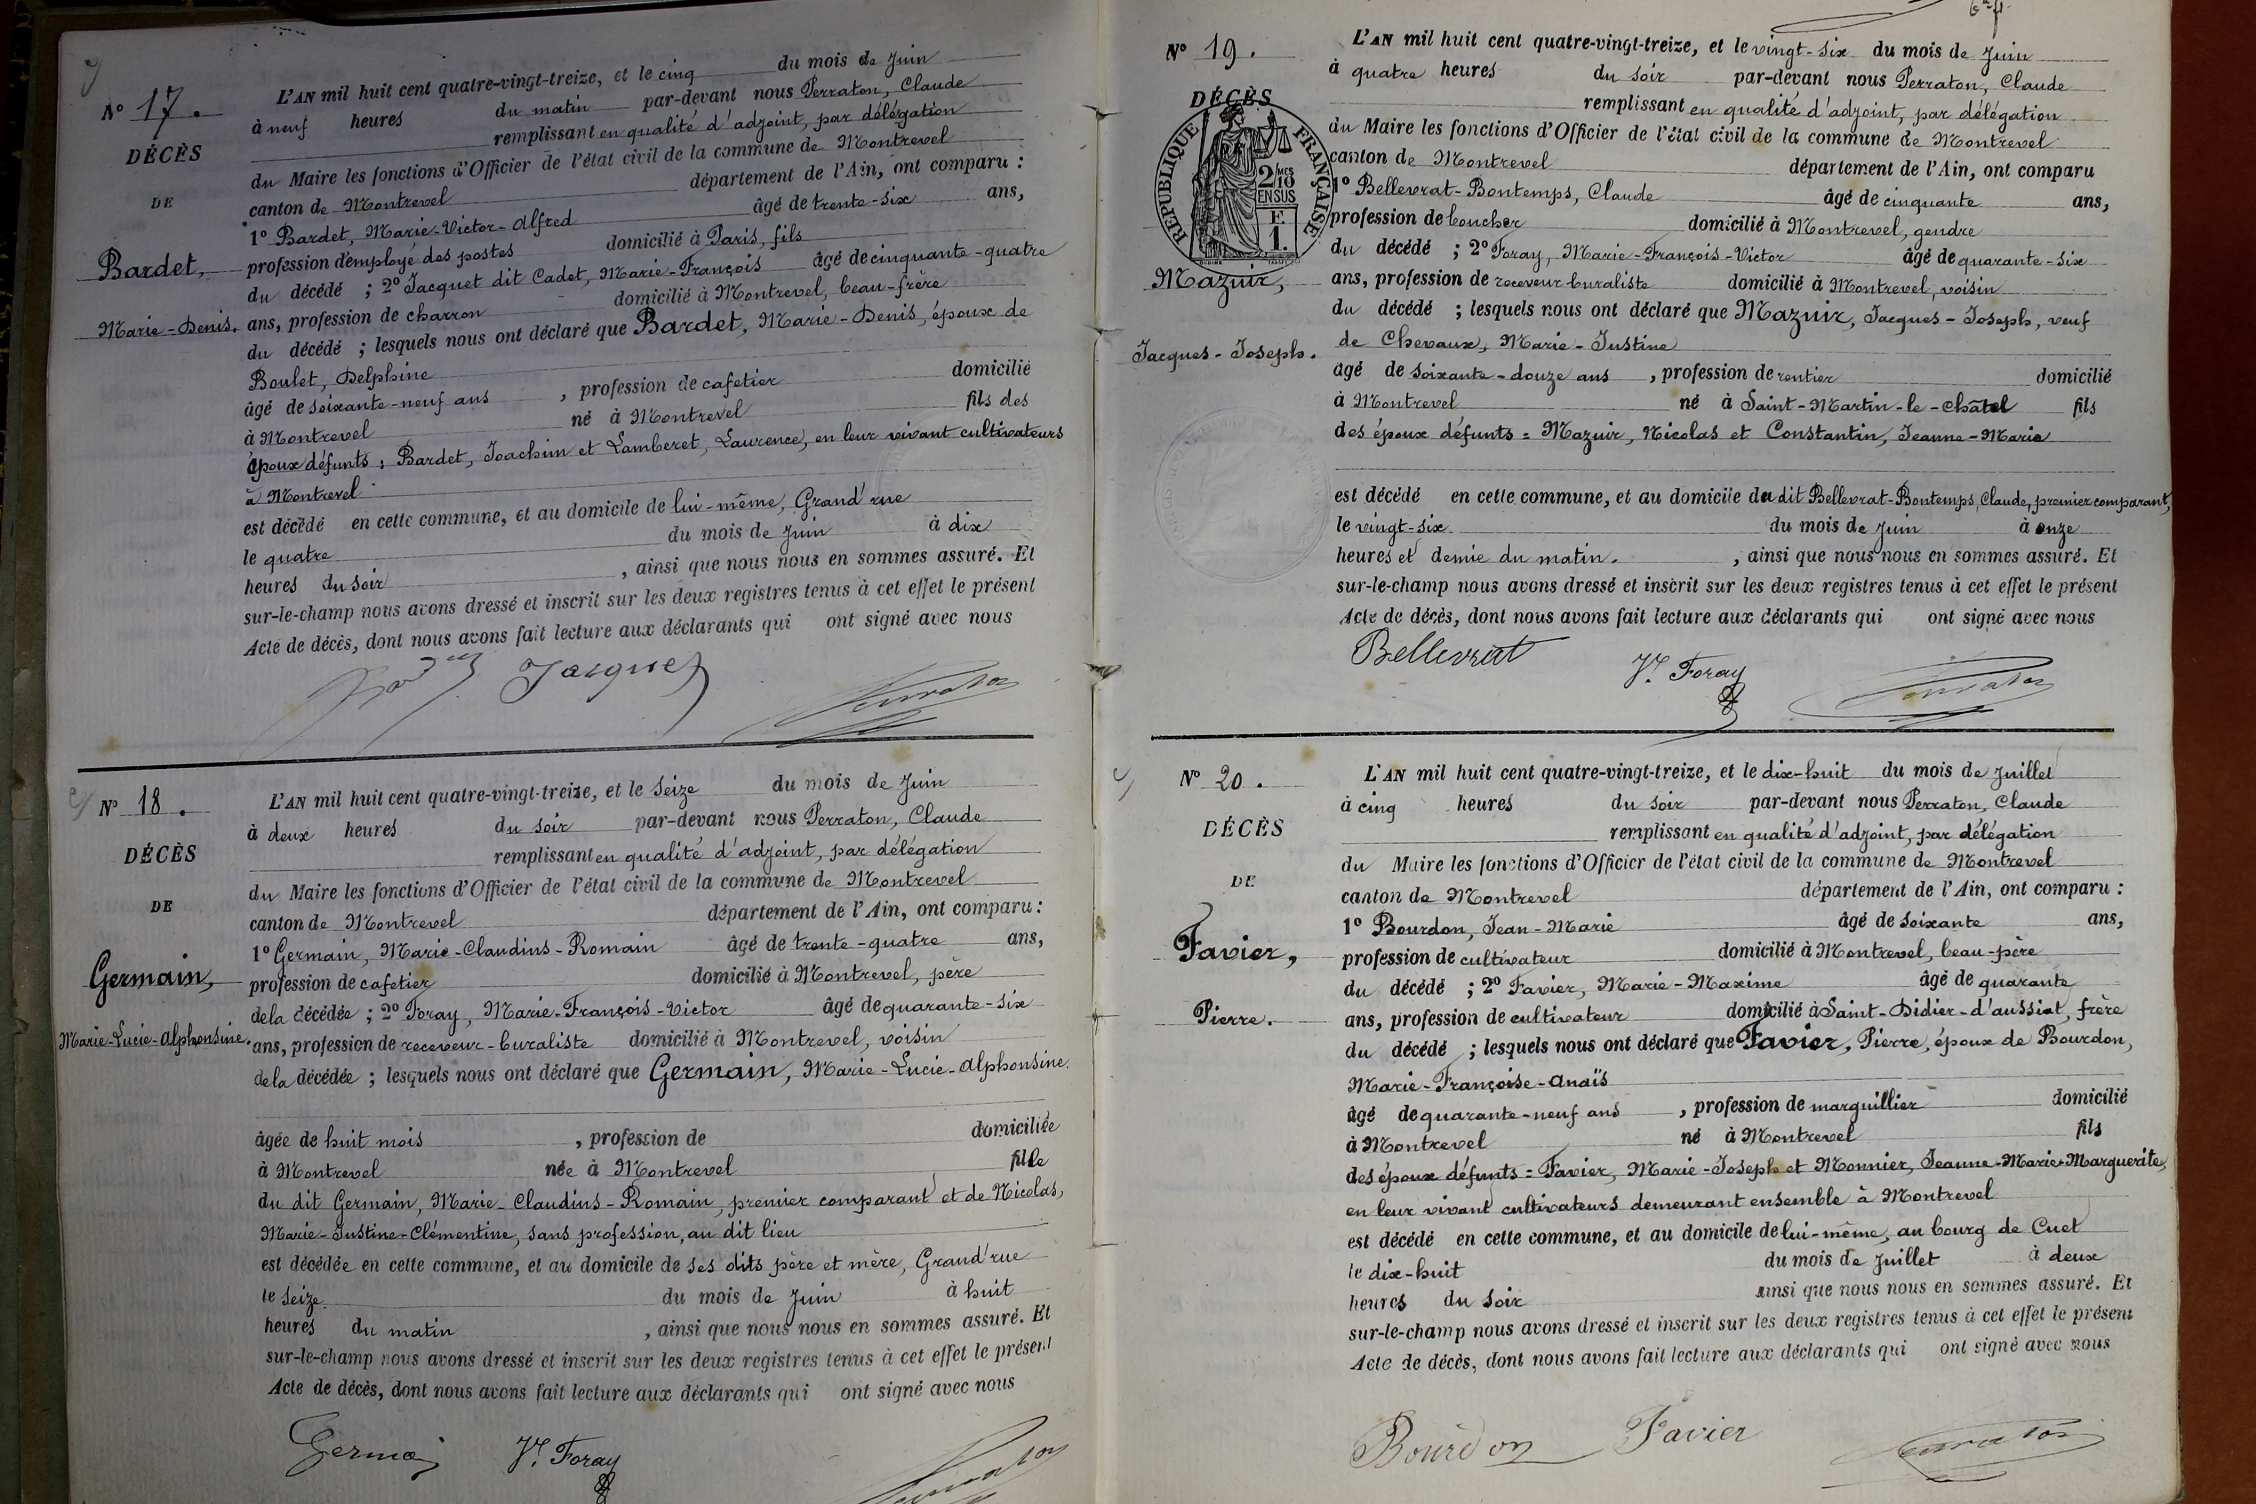 N° 17.
DÉCÈS
DE
Bardet,
Marie-Denis.
L'AN mil huit cent quatre-vingt-treize, et le cinq du mois de Juin
à neuf heures du matin par-devant nous Perraton, Claude
remplissant en qualité d'adjoint, par délégation
du Maire les fonctions d'Officier de l'état civil de la commune de Montrevel
canton de Montrevel département de l'Ain, ont comparu :
1° Bardet, Marie-Victor-Alfred âgé de trente-six ans,
profession d'employé des postes domicilié à Paris, fils
du décédé ; 2° Jacquet dit Cadet, Marie-François âgé de cinquante-quatre
ans, profession de charron domicilié à Montrevel, beau-frère
du décédé ; lesquels nous ont déclaré que Bardet, Marie-Denis, époux de
Boulet, Delphine
âgé de soixante-neuf ans , profession de cafetier domicilié
à Montrevel né à Montrevel fils des
époux défunts : Bardet, Joachim et Lamberet, Laurence, en leur vivant cultivateurs
à Montrevel
est décédé en cette commune, et au domicile de lui-même, Grand'rue
le quatre du mois de Juin à dix
heures du soir , ainsi que nous nous en sommes assuré. Et
sur-le-champ nous avons dressé et inscrit sur les deux registres tenus à cet effet le présent
Acte de décès, dont nous avons fait lecture aux déclarants qui ont signé avec nous
Jacquet Perraton
N° 18.
DÉCÈS
DE
Germain,
Marie-Lucie-Alphonsine.
L'AN mil huit cent quatre-vingt-treize, et le seize du mois de Juin
à deux heures du soir par-devant nous Perraton, Claude
remplissant en qualité d'adjoint, par délégation
du Maire les fonctions d'Officier de l'état civil de la commune de Montrevel
canton de Montrevel département de l'Ain, ont comparu :
1° Germain, Marie-Claudius-Romain âgé de trente-quatre ans,
profession de cafetier domicilié à Montrevel, père
de la décédée ; 2° Foray, Marie-François-Victor âgé de quarante-six
ans, profession de receveur-buraliste domicilié à Montrevel, voisin
de la décédée ; lesquels nous ont déclaré que Germain, Marie-Lucie-Alphonsine.
âgée de huit mois , profession de domiciliée
à Montrevel née à Montrevel fille
du dit Germain, Marie-Claudius-Romain, premier comparant et de Nicolas,
Marie-Justine-Clémentine, sans profession, au dit lieu
est décédée en cette commune, et au domicile de ses dits père et mère, Grand'rue
le seize du mois de Juin à huit
heures du matin , ainsi que nous nous en sommes assuré. Et
sur-le-champ nous avons dressé et inscrit sur les deux registres tenus à cet effet le présent
Acte de décès, dont nous avons fait lecture aux déclarants qui ont signé avec nous
Germain Vr. Foray Perraton
N° 19.
DÉCÈS
RÉPUBLIQUE FRANÇAISE
2/10 EN SUS
E 1.
Mazuir,
Jacques-Joseph.
L'AN mil huit cent quatre-vingt-treize, et le vingt-six du mois de Juin
à quatre heures du soir par-devant nous Perraton, Claude
remplissant en qualité d'adjoint, par délégation
du Maire les fonctions d'Officier de l'état civil de la commune de Montrevel
canton de Montrevel département de l'Ain, ont comparu
1° Bellevrat-Bontemps, Claude âgé de cinquante ans,
profession de boucher domicilié à Montrevel, gendre
du décédé ; 2° Foray, Marie-François-Victor âgé de quarante-six
ans, profession de receveur buraliste domicilié à Montrevel, voisin
du décédé ; lesquels nous ont déclaré que Mazuir, Jacques-Joseph, veuf
de Chevaux, Marie-Justine
âgé de soixante-douze ans , profession de rentier domicilié
à Montrevel né à Saint-Martin-le-Châtel fils
des époux défunts : Mazuir, Nicolas et Constantin, Jeanne-Marie
est décédé en cette commune, et au domicile du dit Bellevrat-Bontemps, Claude, premier comparant,
le vingt-six du mois de Juin à onze
heures et demie du matin. , ainsi que nous nous en sommes assuré. Et
sur-le-champ nous avons dressé et inscrit sur les deux registres tenus à cet effet le présent
Acte de décès, dont nous avons fait lecture aux déclarants qui ont signé avec nous
Bellevrat Vr. Foray Perraton
N° 20.
DÉCÈS
DE
Favier,
Pierre.
L'AN mil huit cent quatre-vingt-treize, et le dix-huit du mois de Juillet
à cinq heures du soir par-devant nous Perraton, Claude
remplissant en qualité d'adjoint, par délégation
du Maire les fonctions d'Officier de l'état civil de la commune de Montrevel
canton de Montrevel département de l'Ain, ont comparu :
1° Bourdon, Jean-Marie âgé de soixante ans,
profession de cultivateur domicilié à Montrevel, beau-père
du décédé ; 2° Favier, Marie-Maxime âgé de quarante
ans, profession de cultivateur domicilié à Saint-Didier-d'aussiat, frère
du décédé ; lesquels nous ont déclaré que Favier, Pierre, époux de Bourdon,
Marie-Françoise-Anaïs
âgé de quarante-neuf ans , profession de marguillier domicilié
à Montrevel né à Montrevel fils
des époux défunts : Favier, Marie-Joseph et Monnier, Jeanne-Marie-Marguerite,
en leur vivant cultivateurs demeurant ensemble à Montrevel
est décédé en cette commune, et au domicile de lui-même, au bourg de Cuet
le dix-huit du mois de Juillet à deux
heures du soir ainsi que nous nous en sommes assuré. Et
sur-le-champ nous avons dressé et inscrit sur les deux registres tenus à cet effet le présent
Acte de décès, dont nous avons fait lecture aux déclarants qui ont signé avec nous
Bourdon Favier Perraton